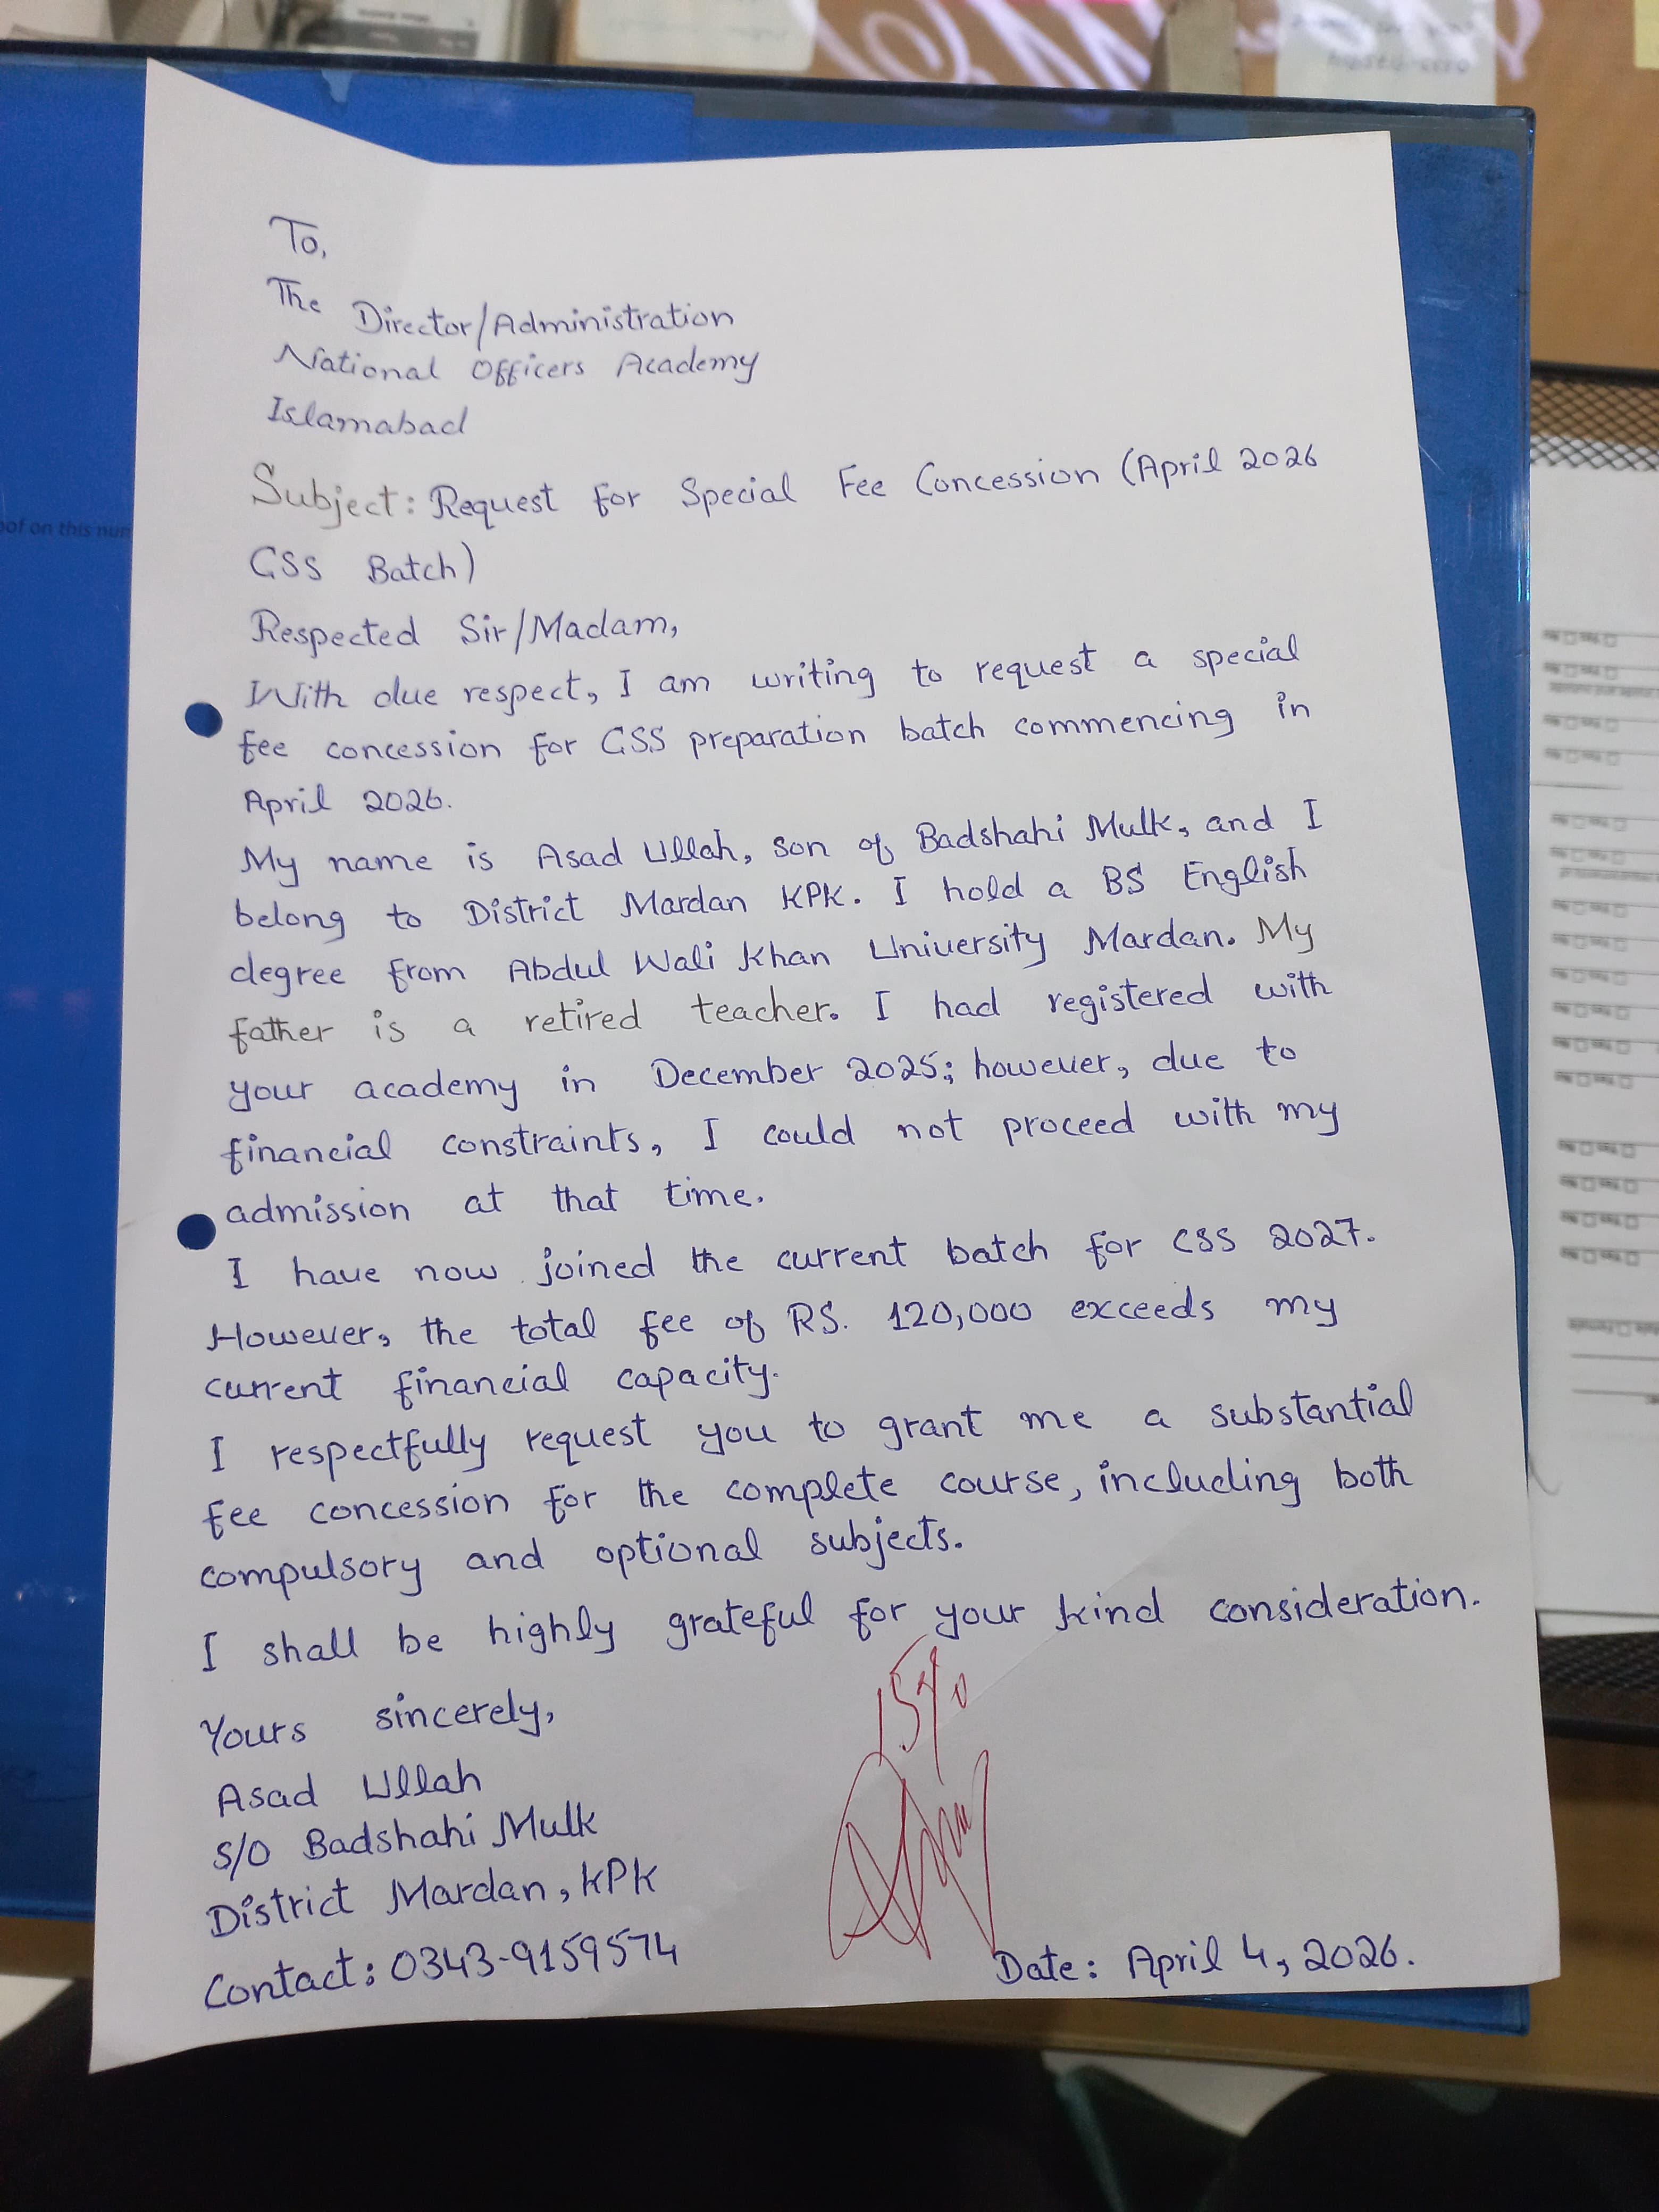 To,
The Director/Administration
National Officers Academy
Islamabad
Subject: Request for Special Fee Concession (April 2026
CSS Batch)
Respected Sir/Madam,
With due respect, I am writing to request a special
fee concession for CSS preparation batch commencing in
April 2026.
My name is Asad Ullah, son of Badshahi Mulk, and I
belong to District Mardan KPK. I hold a BS English
degree from Abdul Wali Khan University Mardan. My
father is a retired teacher. I had registered with
your academy in December 2025; however, due to
financial constraints, I could not proceed with my
admission at that time.
I have now joined the current batch for CSS 2027.
However, the total fee of RS. 120,000 exceeds my
current financial capacity.
I respectfully request you to grant me a substantial
fee concession for the complete course, including both
compulsory and optional subjects.
I shall be highly grateful for your kind consideration.
Yours sincerely,
15%
Asad Ullah
S/O Badshahi Mulk
District Mardan, KPK
Contact: 0343-9159574
Date: April 4, 2026.
of on this num